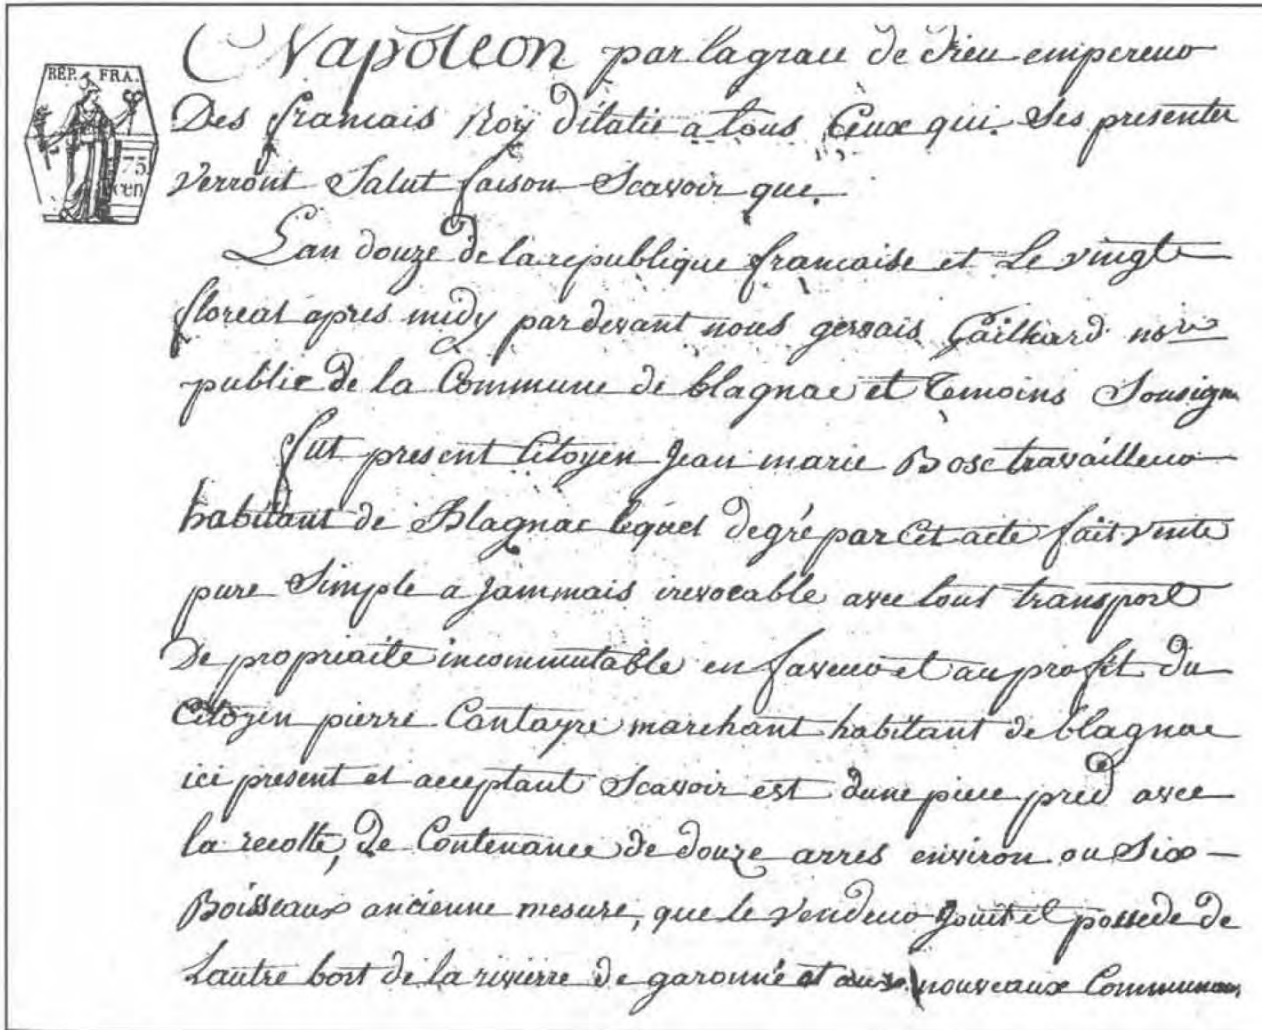 Napoléon par la grace de Dieu empereur
REP. FRA.
Des francais Roy d'italie a tous Ceux qui Ses presentes
75
cen
Verront Salut faison Scavoir que.
Lan douze de la republique francaise et le vingt
floreal apres midy par devant nous gervais Gailhard nore
public de la Commune de blagnac et Temoins Sousigne
fut present Citoyen Jean marie Bosc travailleur
habitant de Blagnac lequel de gré par Cet acte fait vente
pure Simple a Jammais irevocable avec tout transport
De propriaite incommutable en faveur et au profit du
Citoyen pierre Contayre marchant habitant de blagnac
ici present et acceptant Scavoir est dune piece pred avec
la recolte, de Contenance de douze arres environ ou Six
Boisseaux ancienne mesure, que le Vendeur Jouit et possede de
Lautre bort de la rivierre de garonne et aux nouveaux Communaux